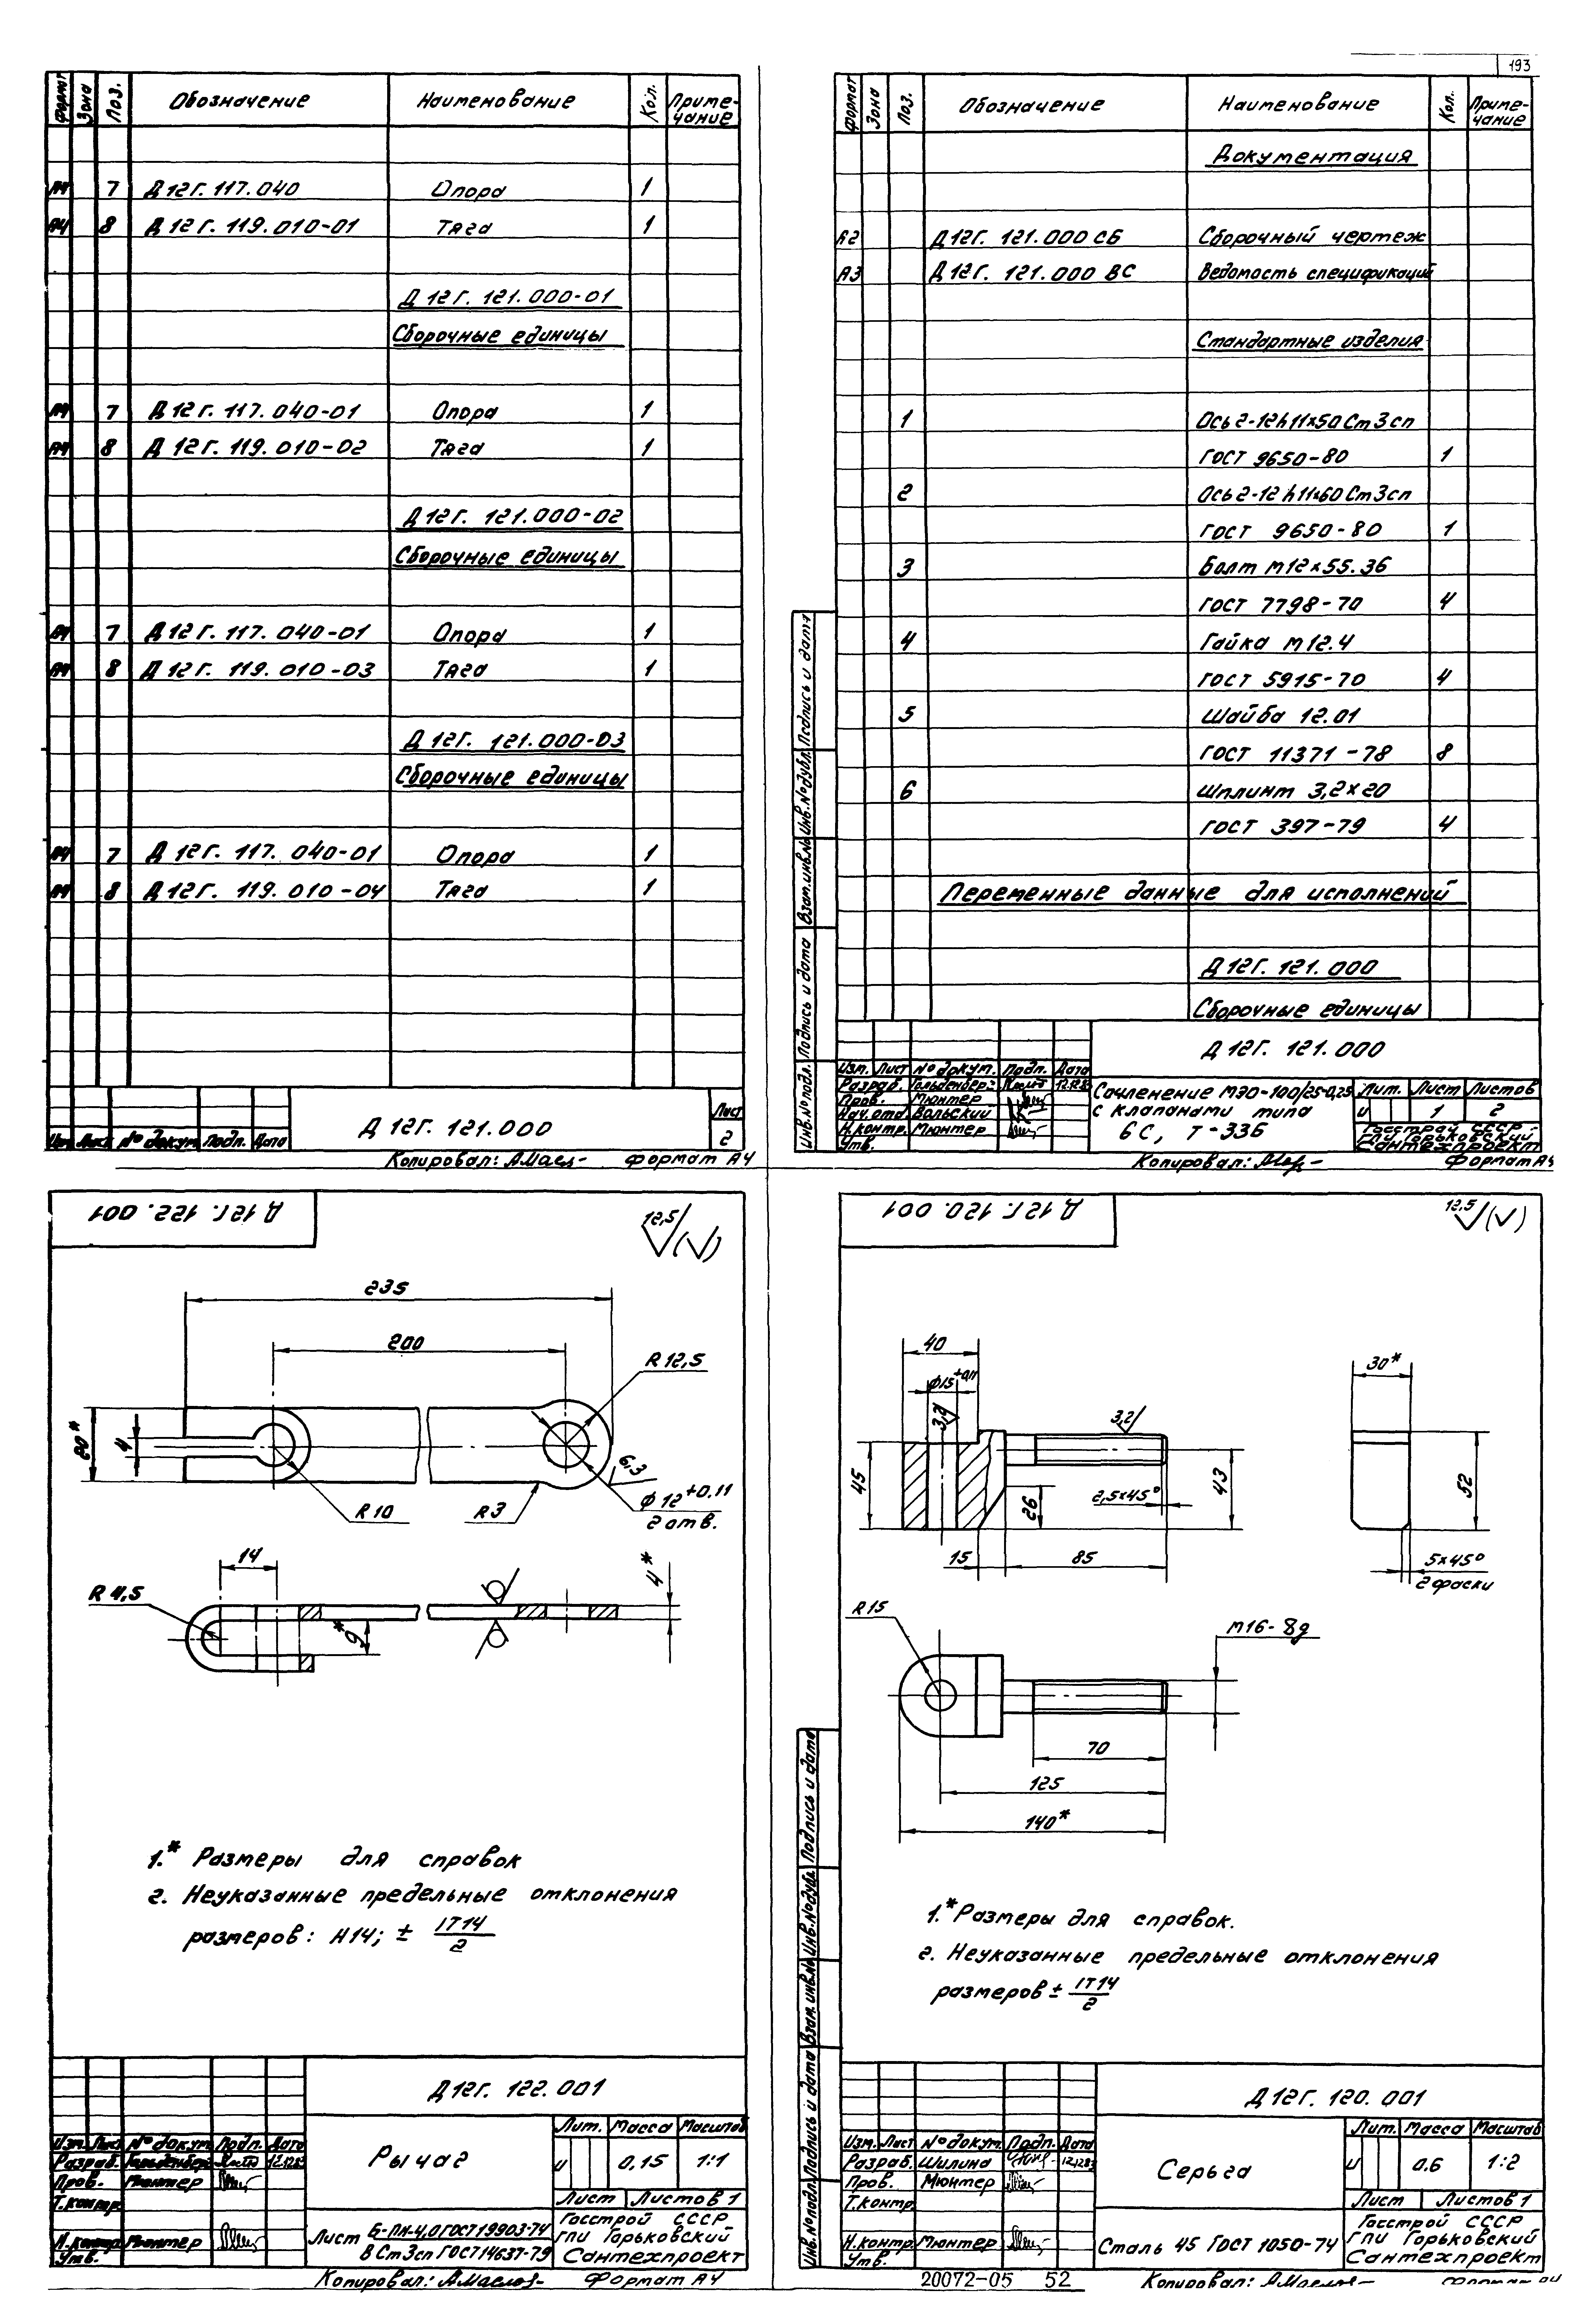 193
Формат Зона Поз. Обозначение Наименование Кол. Приме-чание
А4 7 Д 12Г. 117.040 Опора 1
А4 8 Д 12Г. 119.010-01 Тяга 1
Д 12Г. 121.000-01
Сборочные единицы
А4 7 Д 12Г. 117.040-01 Опора 1
А4 8 Д 12Г. 119.010-02 Тяга 1
Д 12Г. 121.000-02
Сборочные единицы
А4 7 Д 12Г. 117.040-01 Опора 1
А4 8 Д 12Г. 119.010-03 Тяга 1
Д 12Г. 121.000-03
Сборочные единицы
А4 7 Д 12Г. 117.040-01 Опора 1
А4 8 Д 12Г. 119.010-04 Тяга 1
Изм. Лист № докум. Подп. Дата
Д 12Г. 121.000
Лист
2
Копировал: Формат А4
Формат Зона Поз. Обозначение Наименование Кол. Приме-чание
Документация
А2 Д 12Г. 121.000 СБ Сборочный чертеж
А3 Д 12Г. 121.000 ВС Ведомость спецификаций
Стандартные изделия
1 Ось 2-12h11×50 Ст3сп
ГОСТ 9650-80 1
2 Ось 2-12h11×60 Ст3сп
ГОСТ 9650-80 1
3 Болт М12×55.36
ГОСТ 7798-70 4
4 Гайка М12.4
ГОСТ 5915-70 4
5 Шайба 12.01
ГОСТ 11371-78 8
6 Шплинт 3,2×20
ГОСТ 397-79 4
Переменные данные для исполнений
Д 12Г. 121.000
Сборочные единицы
Инв.№ подл. Подпись и дата Взам.инв.№ Инв.№ дубл. Подпись и дата
Д 12Г. 121.000
Изм. Лист № докум. Подп. Дата
Разраб. Гольденберг
Пров. Мюнтер
Нач.отд. Вольский
Н.контр. Мюнтер
Утв.
Сочленение МЭО-100/25-0,25
с клапанами типа
6С, Т-33Б
Лит. Лист Листов
И 1 2
Госстрой СССР
ГПИ Горьковский
Сантехпроект
Копировал: Формат А4
Д 12Г. 122. 001
12,5
235
200
R 12,5
20*
4
R 10
R3
6,3
Ф 12 +0.11
2 отв.
14
R 4,5
9*
4*
1.* Размеры для справок
2. Неуказанные предельные отклонения
размеров: Н14; ± IT14/2
Д 12Г. 122. 001
Изм. Лист № докум. Подп. Дата
Разраб. Гольденберг
Пров. Мюнтер
Т.контр.
Н.контр. Мюнтер
Утв.
Рычаг
Лит. Масса Масштаб
И 0,15 1:1
Лист Листов 1
Лист Б-ПН-4,0 ГОСТ 19903-74
В Ст3сп ГОСТ 14637-79
Госстрой СССР
ГПИ Горьковский
Сантехпроект
Копировал: Формат А4
Д 12Г. 120. 001
12,5
40
Ф15 +0,11
3,2
3,2
45
26
2,5×45°
43
15
85
30*
52
5×45°
2 фаски
R15
М16-8g
70
125
140*
1.* Размеры для справок.
2. Неуказанные предельные отклонения
размеров ± IT14/2
Инв.№ подл. Подпись и дата Взам.инв.№ Инв.№ дубл. Подпись и дата
Д 12Г. 120. 001
Изм. Лист № докум. Подп. Дата
Разраб. Шилина
Пров. Мюнтер
Т.контр.
Н.контр. Мюнтер
Утв.
Серьга
Лит. Масса Масштаб
И 0.6 1:2
Лист Листов 1
Сталь 45 ГОСТ 1050-74
Госстрой СССР
ГПИ Горьковский
Сантехпроект
20072-05 52
Копировал: Формат А4